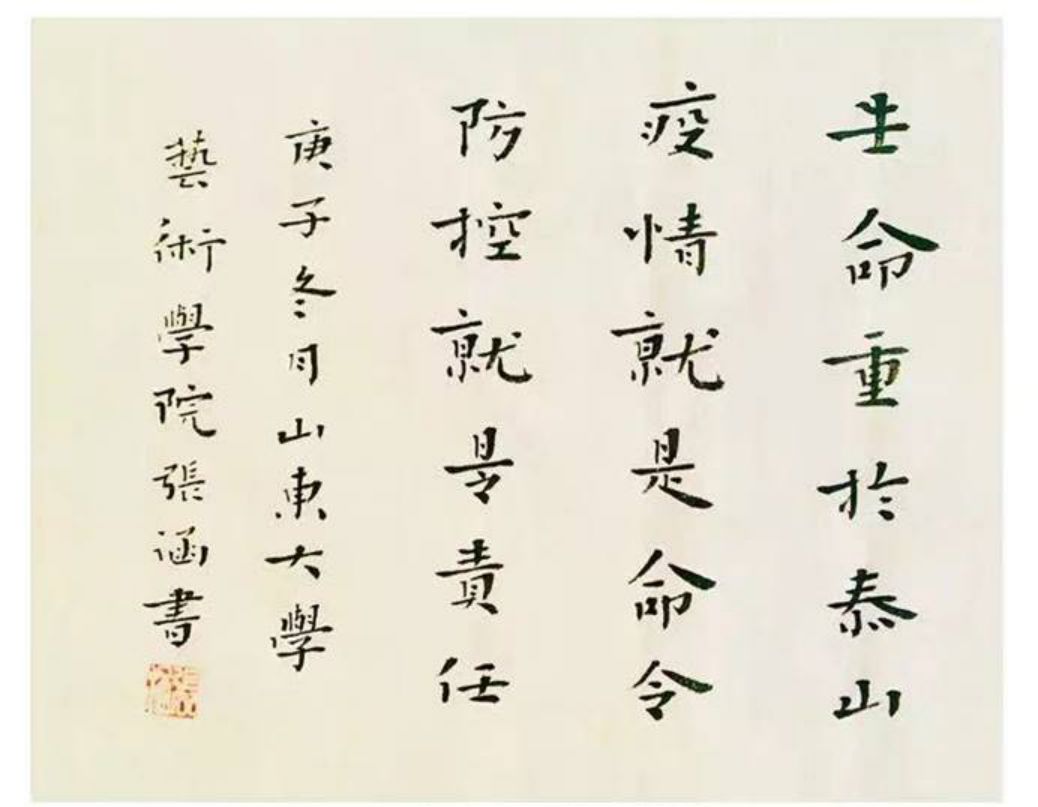 生命重於泰山
疫情就是命令
防控就是責任
庚子冬月山東大學
藝術學院張涵書